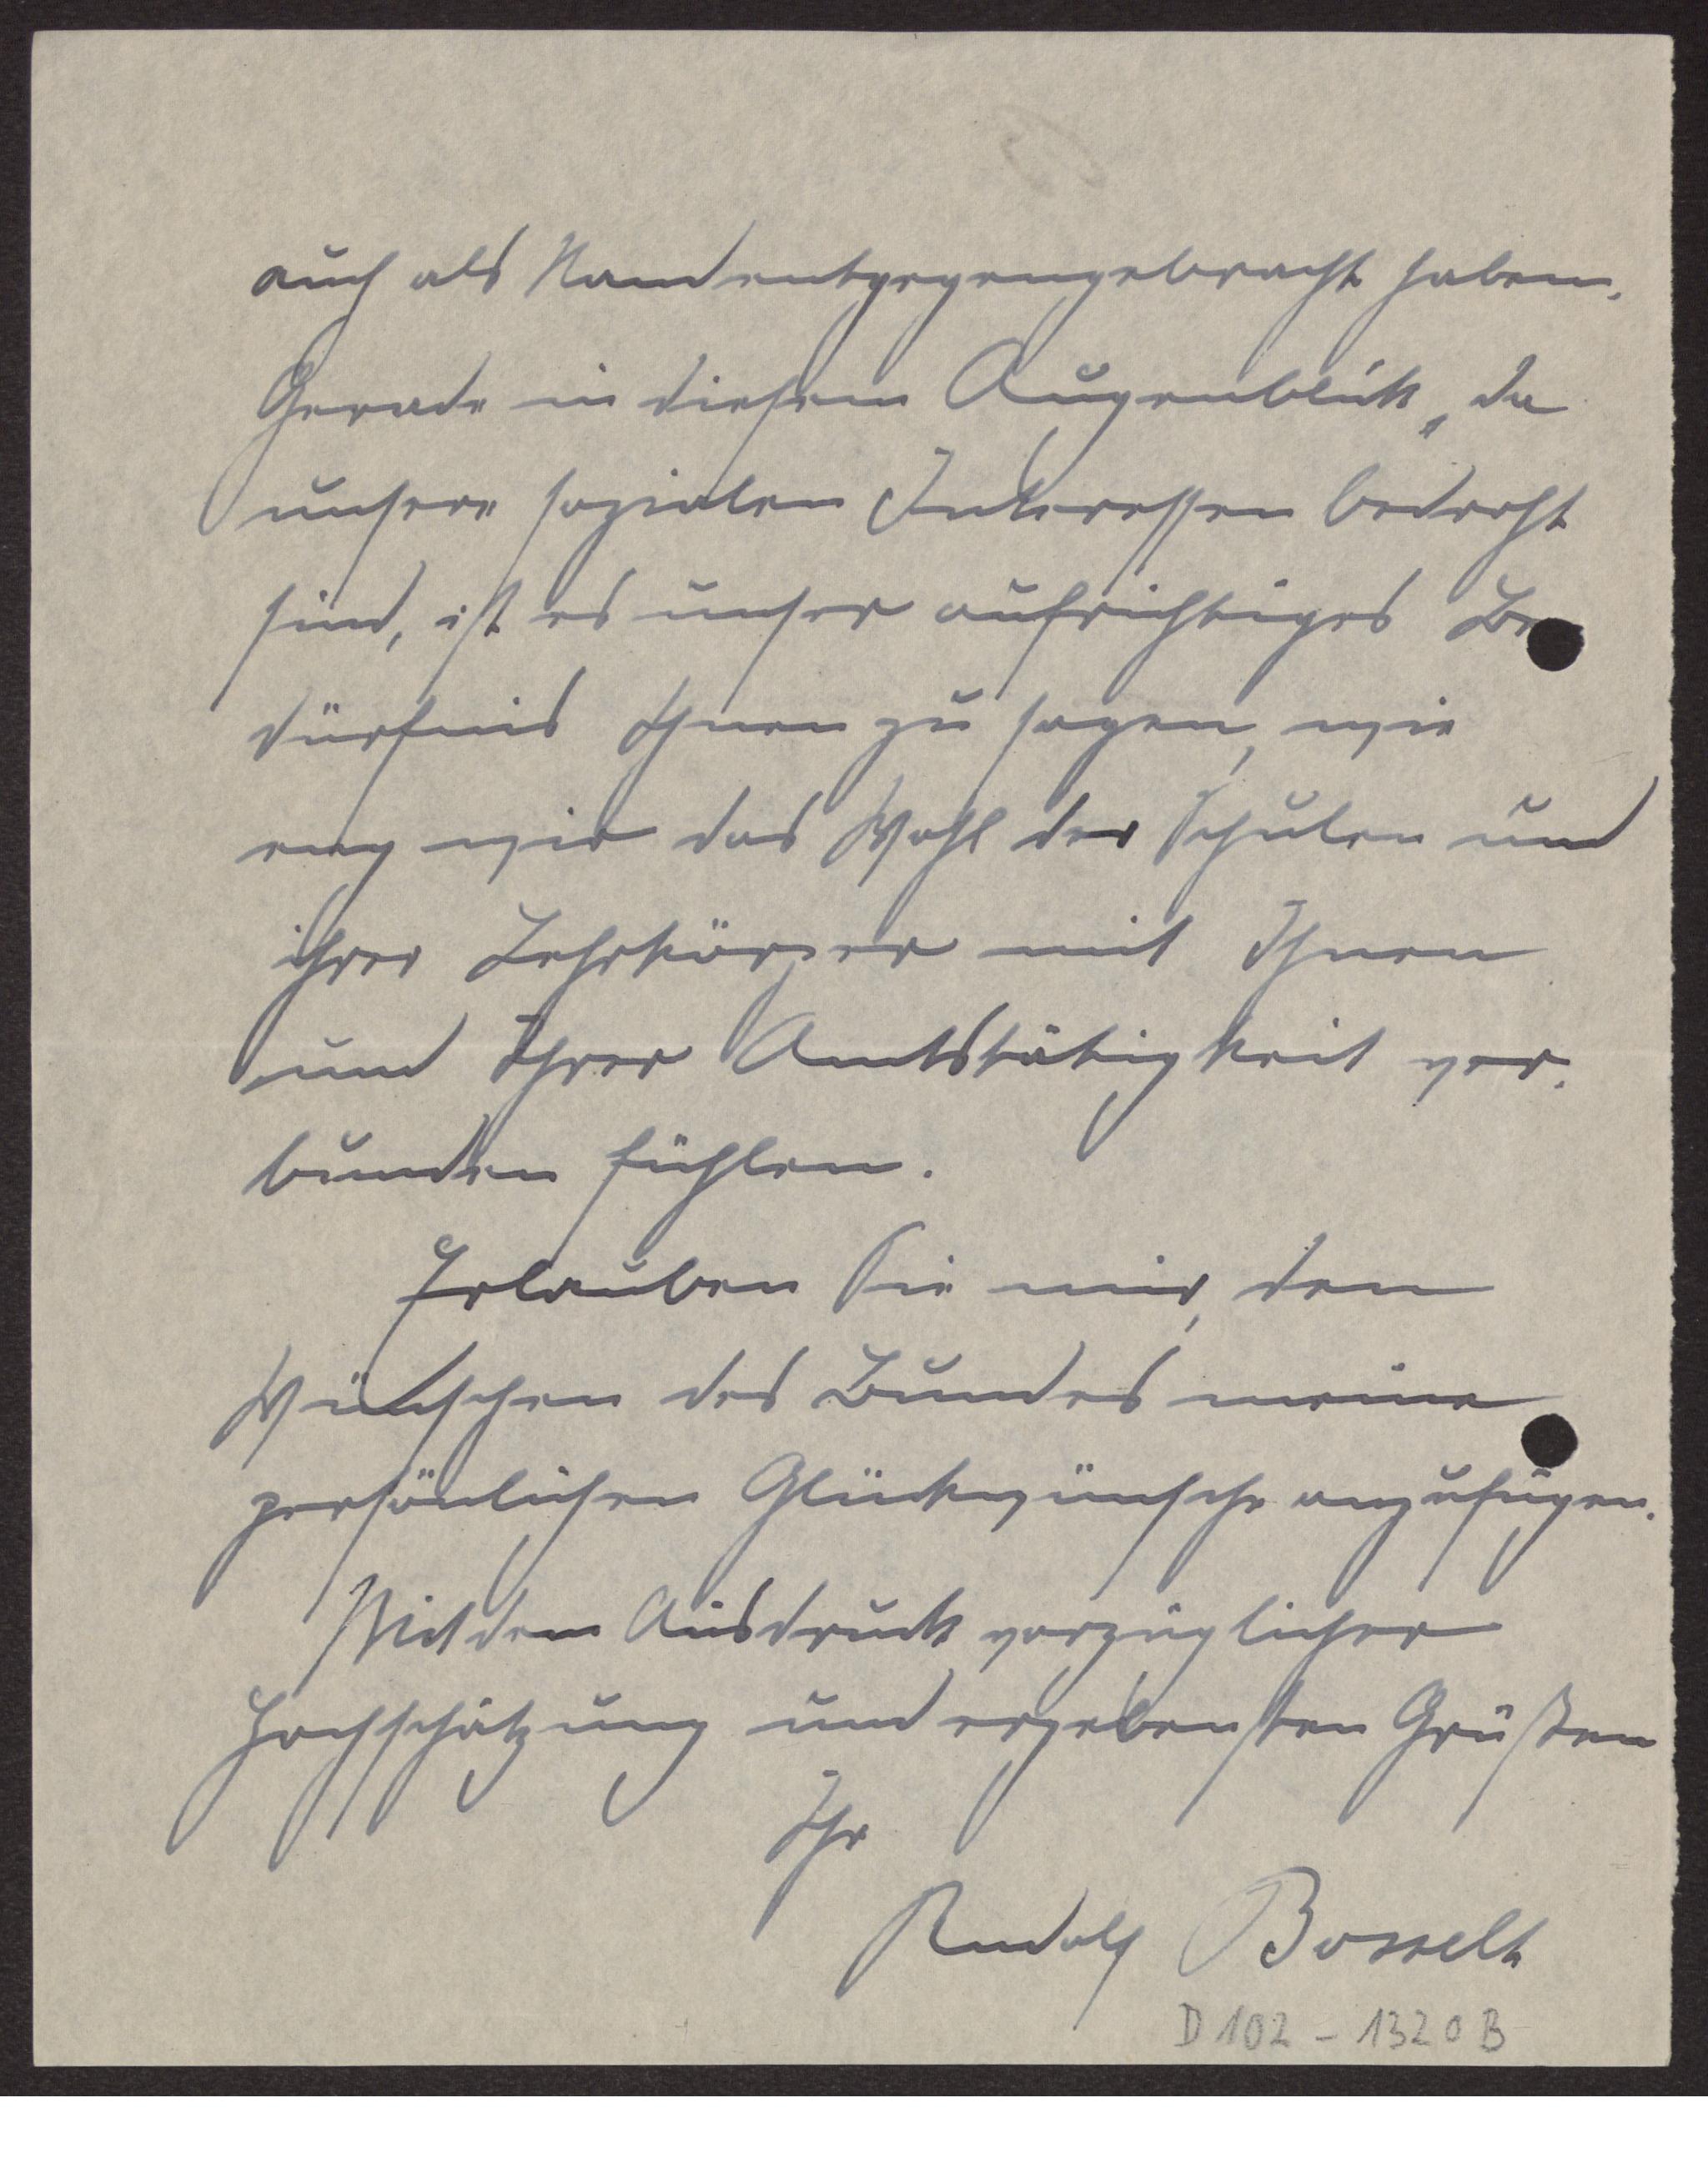 auch als Stand entgegengebracht haben.
Gerade in diesem Augenblick, da
unsere sozialen Interessen bedroht
sind, ist es unser aufrichtiges Be
dürfnis Ihnen zu sagen, wie
eng wir das Wohl der Schulen und
ihrer Lehrkörper mit Ihnen
und Ihrer Amtstätigkeit ver-
bunden fühlen.
Erlauben Sie mir, den
Wünschen des Bundes meine
persönlichen Glückwünsche anzufügen.
Mit dem Ausdruck vorzüglicher
Hochschätzung und ergebensten Grüßen
Ihr
Rudolf Bosselt
D 102 - 1320 B